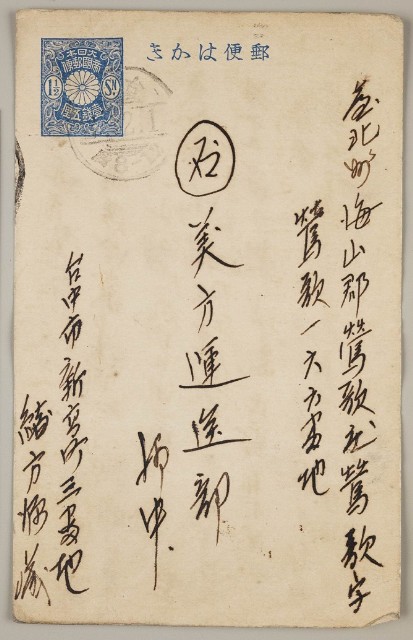 郵便はかき
大日本
帝國郵便
1½ Sn.
壹錢五厘
臺北州海山郡鶯歌庄鶯歌字
鶯歌一六六番地
美方運送部
御中
台中市新富町三番地